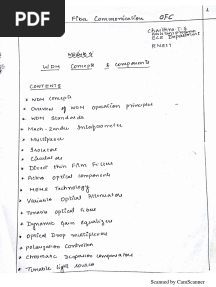 PDF
Fiber Communication OFC
1
ECE Department
RNSIT
Module 5
WDM Concepts & Components
CONTENTS
* WDM concepts
* Overview of WDM operation principles
* WDM standards
* Mach-Zender Interferometer
* Multiplexer
* Isolators
* Circulators
* Direct thin Film Filters
* Active optical components
* MEMS Technology
* Variable Optical Attenuators
* Tunable optical Filters
* Dynamic Gain equalizers
* Optical Drop multiplexers
* Polarization controllers
* Chromatic Dispersion compensators
* Tunable light sources
Scanned by CamScanner